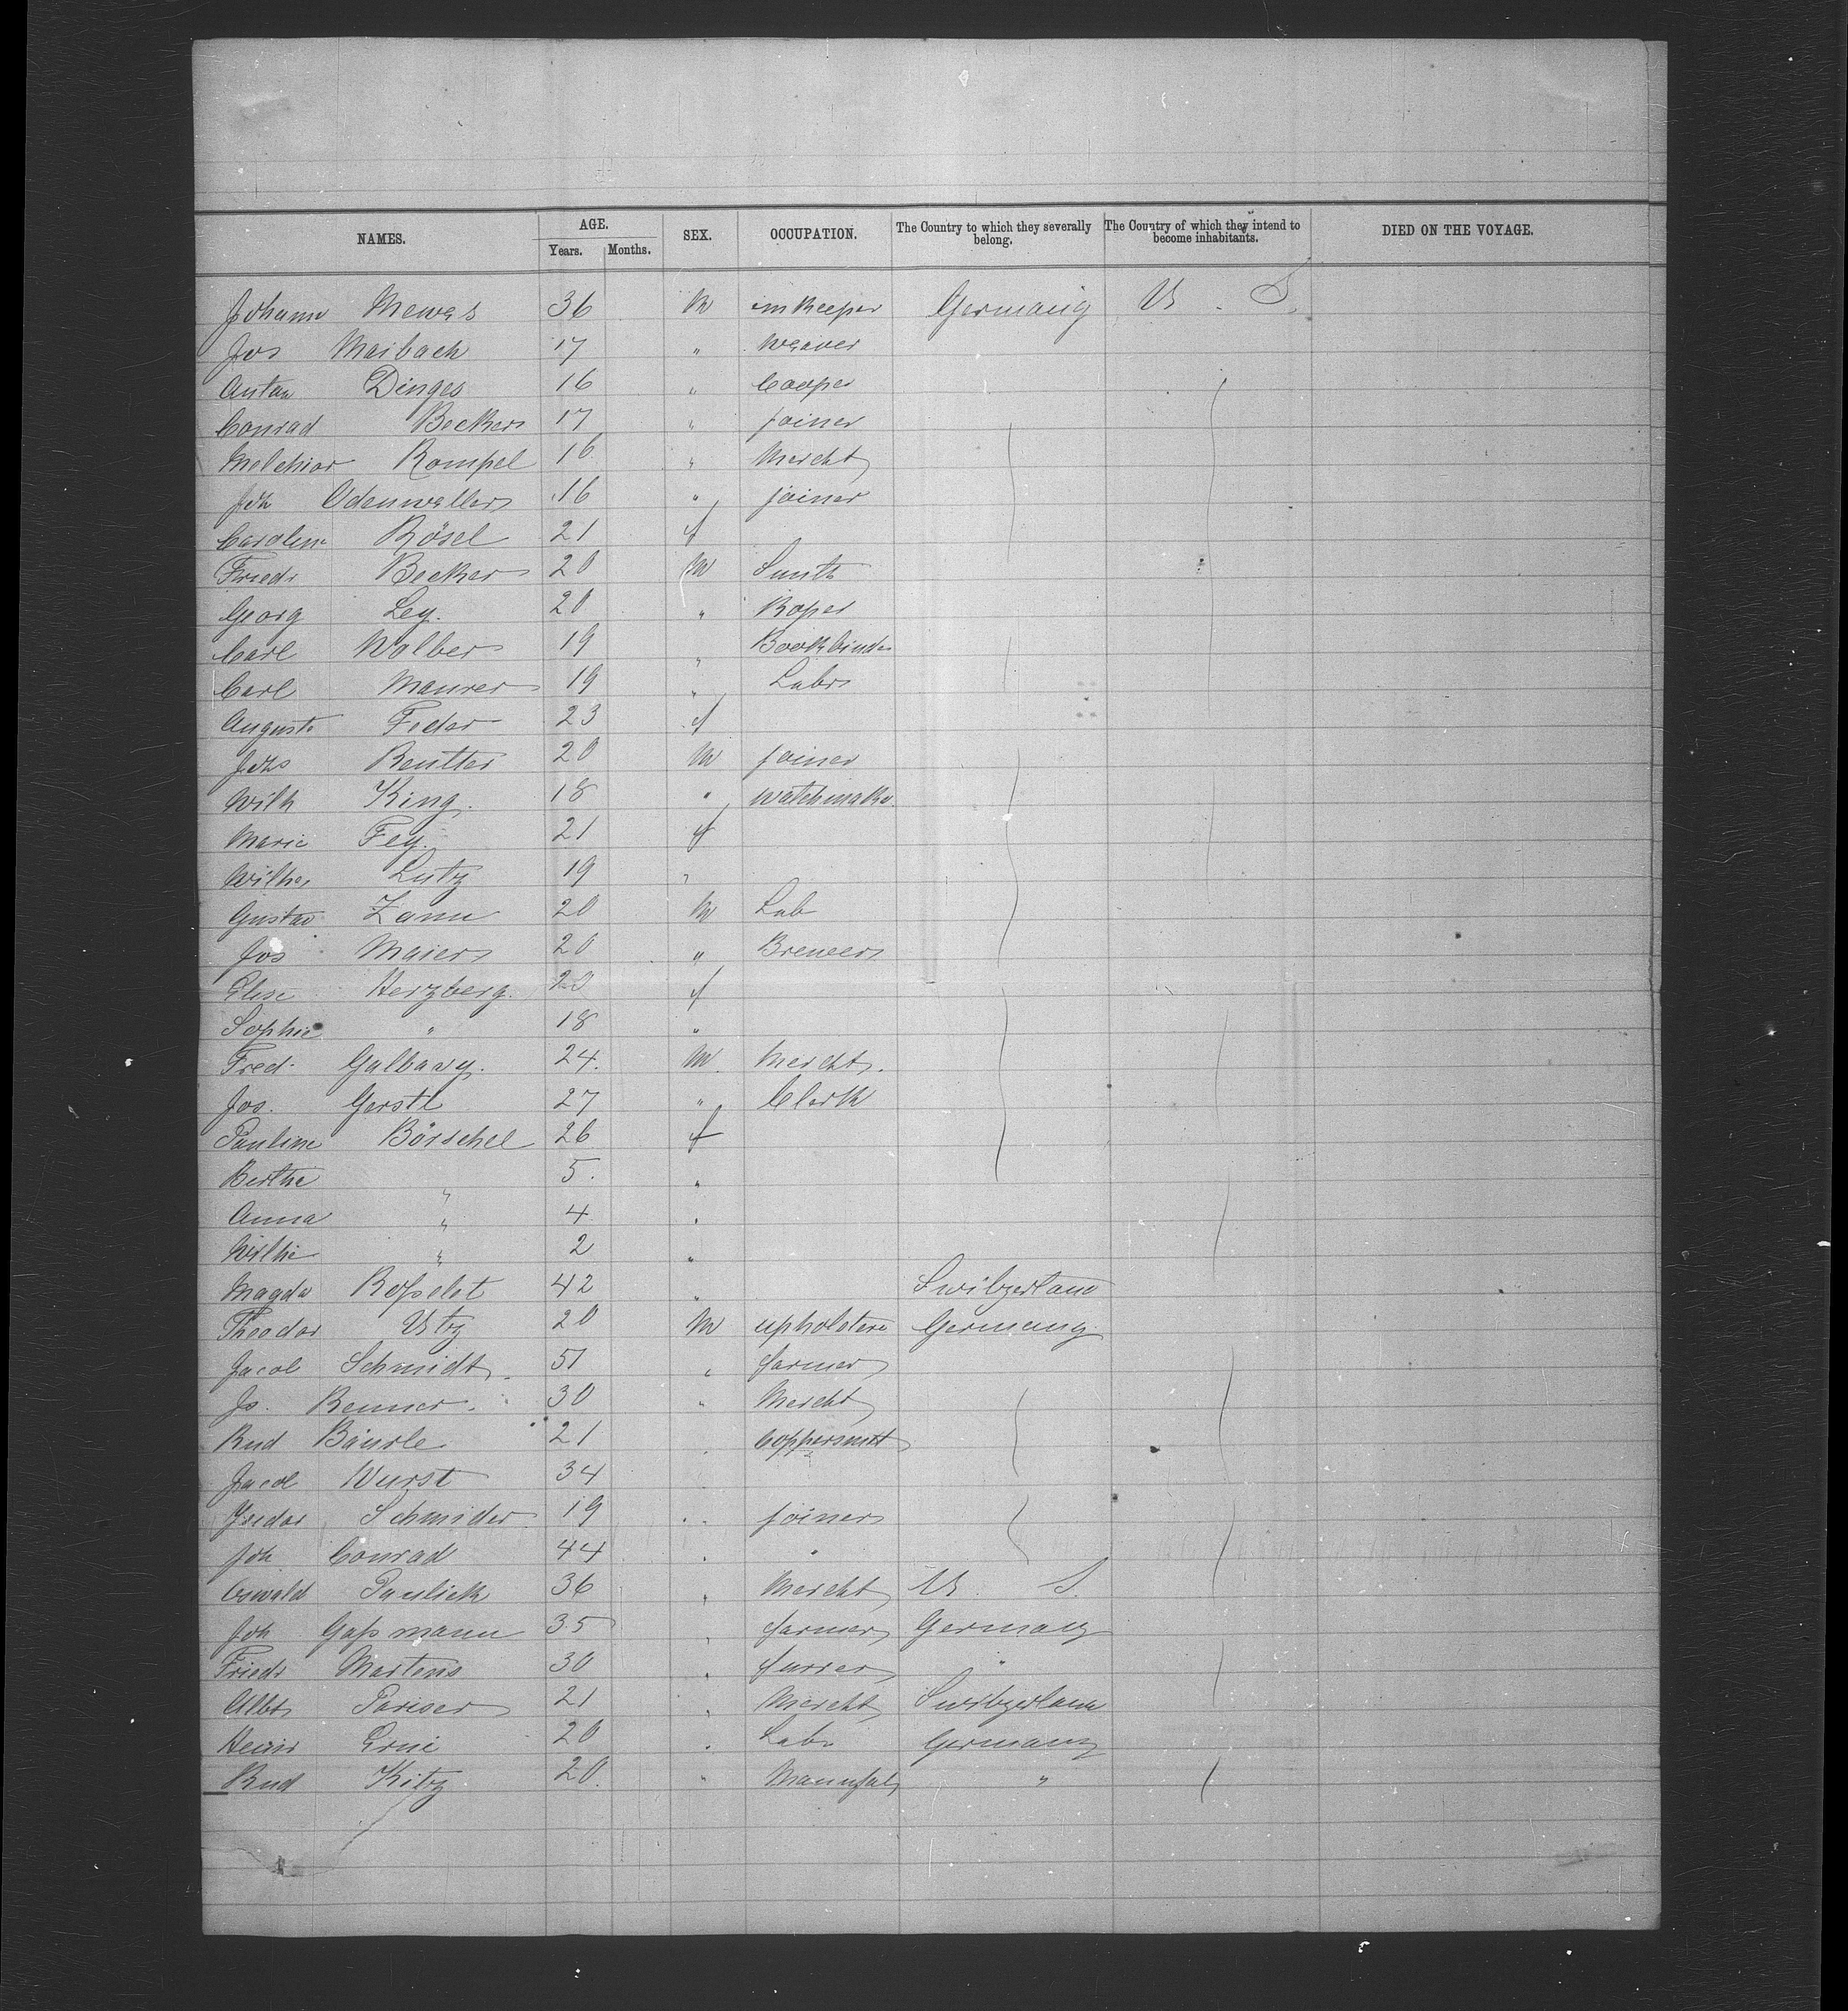 NAMES. AGE. SEX. OCCUPATION. The Country to which they severally belong. The Country of which they intend to become inhabitants. DIED ON THE VOYAGE.
Years. Months.
Johann Mewes 36 M innkeeper Germany U. S.
Jos Maibach 17 " Weaver
Anton Dinges 16 " Cooper
Conrad Becker 17 " joiner
Melchior Rompel 16 " Mercht
Joh Odenweller 16 " joiner
Carolina Rösel 21 f
Friedr Becker 20 M Smith
Georg Ley. 20 " Roper
Carl Wolber 19 " Bookbinder
Carl Maurer 19 " Labr
Auguste Feder 23 f
Johs Reutter 20 M joiner
Wilh King. 18 " watchmaker
Marie Fey. 21 f
Wilhe Lutz 19 "
Gustav Zann 20 M Lab
Jos Maier 20 " Brewer
Elise Herzberg. 20 f
Sophie " 18 "
Fred. Galbavy. 24. M. Mercht.
Jos. Gerstl 27 " Clerk
Pauline Börschel 26 f
Berthe " 5. "
Anna " 4 "
" 2 "
Magda 42 " Switzerland
Theodor Utz 20 M upholstere Germany
Jacob Schmidt 51 " farmer
Js. Renner. 30 " Mercht
Rud Bäurle 21 " Coppersmit
Jacob Wurst 34
Isidor Schmider 19 " joiner
Joh Conrad 44 " "
Oswald Paulick 36 " Mercht U. S.
Joh Gaßmann 35 " farmer Germany
Friedr Martens 30 " furrer "
Albt Pariser 21 " Mercht Switzerland
Heinr Erni 20 " Labr Germany
Rud Kitz 20. " Manufat "